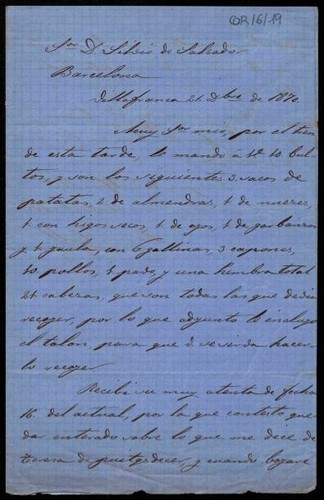 COR/6/19
Sor. D. Silvio de Salvador
Barcelona
Villafranca 21 Dbre de 1870.
Muy Sor. mio, por el tren
de esta tarde, le mando á V. 10 bul-
tos, y son los siguientes 3 sacos de
patatas, 2 de almendras, 1 de nueces,
1 con higos secos, 1 de ajos, 1 de garbanzos
y 1 jaula, con 6 gallinas, 3 capones,
10 pollos, 1 pavo, y una hembra total
21 cabezas, que son todas las que
recoger, por lo que adjunto le incluyo
el talon, para que V. se sirva hacer-
lo recoger.
Recibi su muy atenta de fecha
16 del actual, por la que contesto que
da enterado sobre lo que me dice de
y cuando